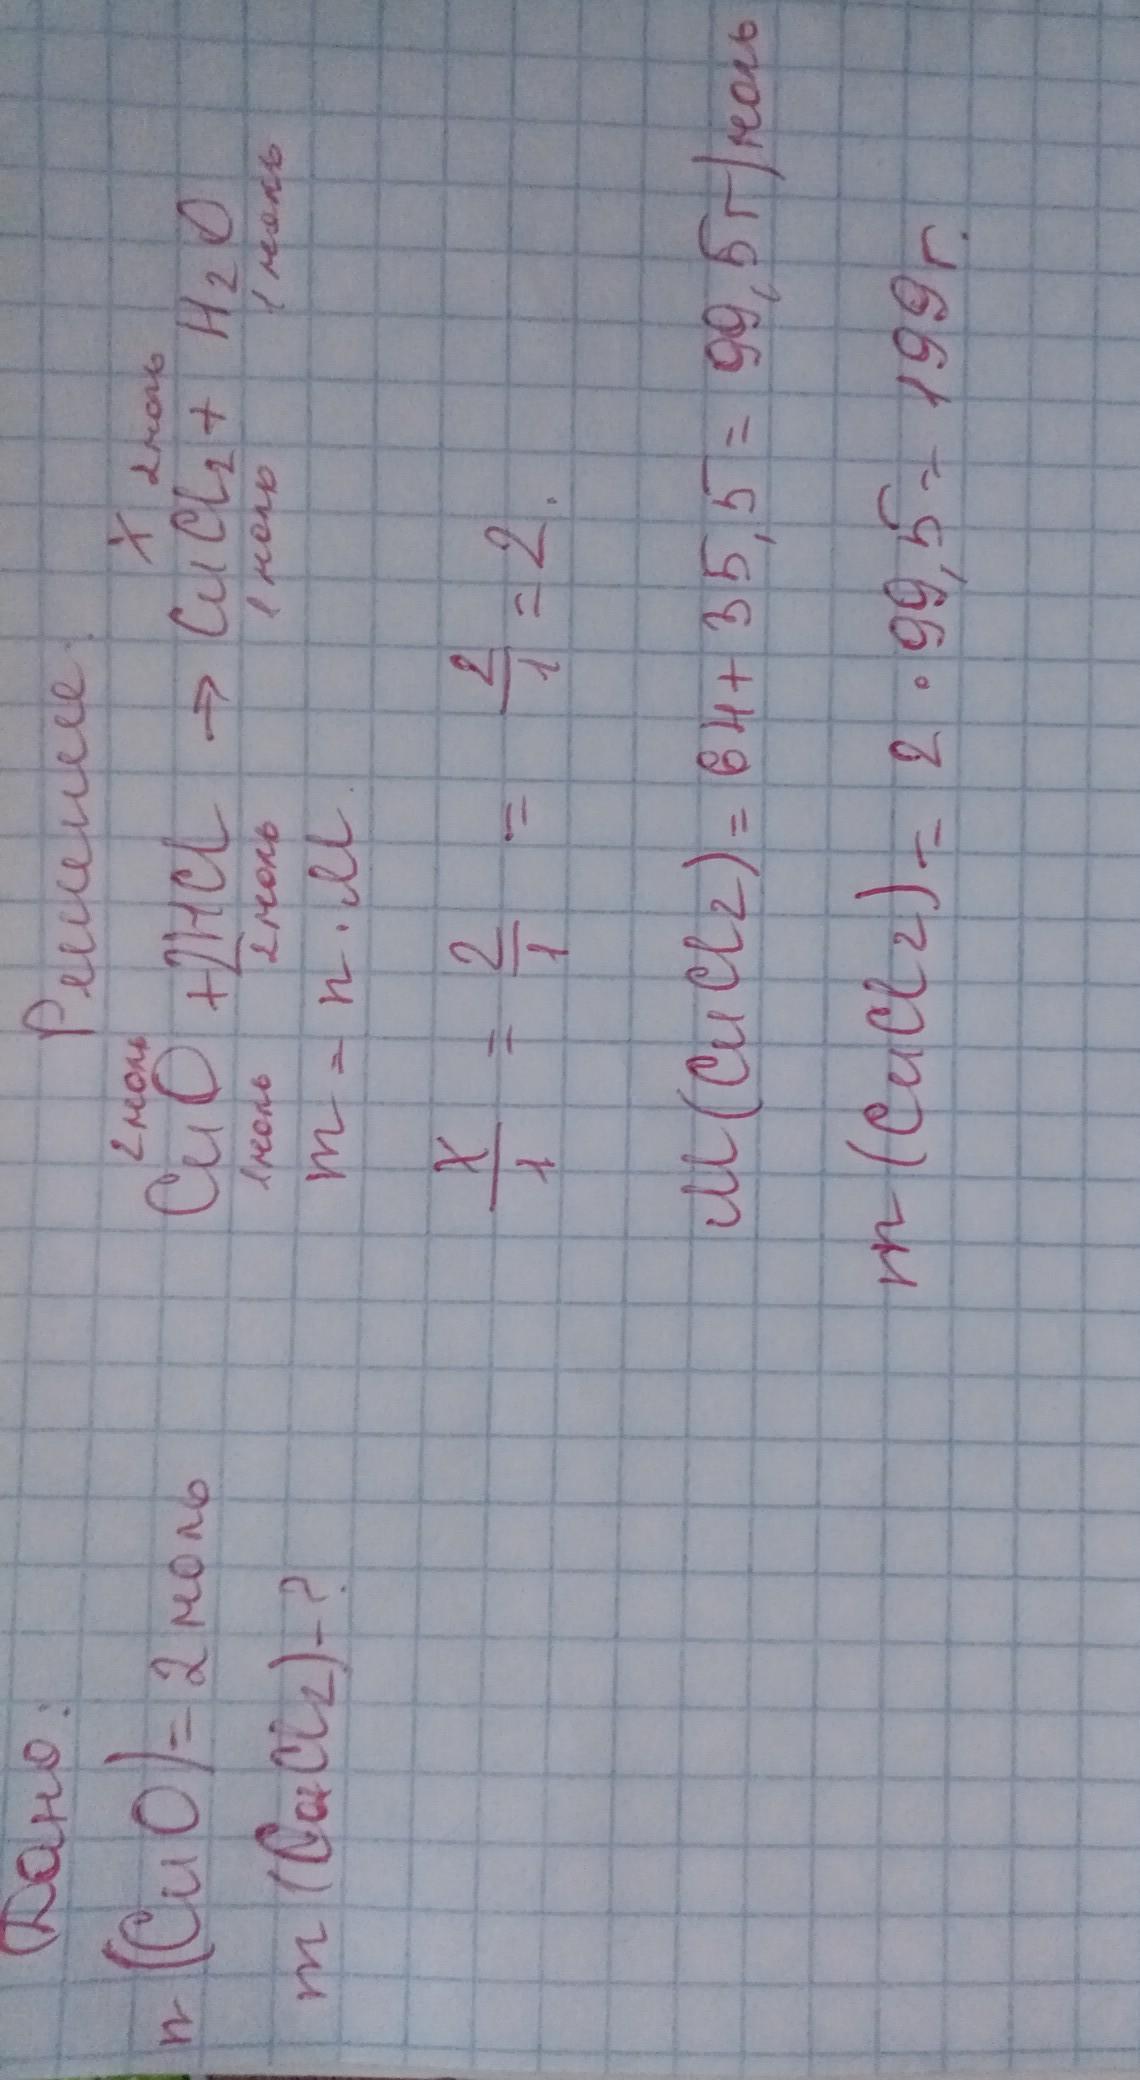 Дано:
n (CuO) = 2 моль
m (CuCl2) - ?
Решение.
2 моль X 2 моль
CuO + 2HCl → CuCl2 + H2O
1 моль 2 моль 1 моль 1 моль
m = n · M.
X/1 = 2/1 = 2/1 = 2.
M (CuCl2) = 64 + 35,5 = 99,5 г/моль
m (CuCl2) = 2 · 99,5 = 199 г.